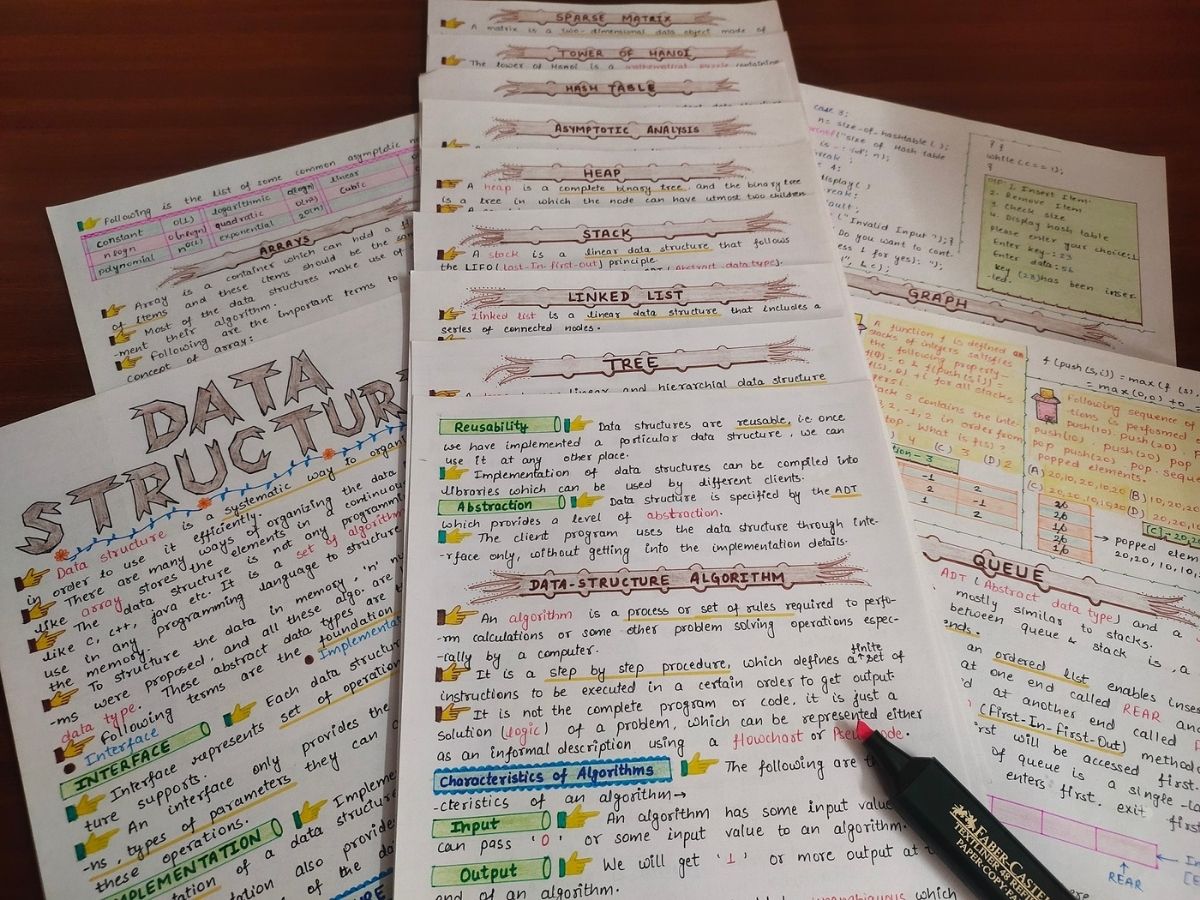 SPARSE MATRIX
A matrix is a two-dimensional data object made of
TOWER OF HANOI
The tower of Hanoi is a mathematical puzzle containing
HASH TABLE
ASYMPTOTIC ANALYSIS
HEAP
A heap is a complete binary tree, and the binary tree
is a tree in which the node can have utmost two children
STACK
A stack is a linear data structure that follows
the LIFO (Last-In-first-out) principle.
LINKED LIST
Linked list is a linear data structure that includes a
series of connected nodes.
TREE
linear and hierarchial data structure
Reusability
Data structures are reusable, i.e once
we have implemented a particular data structure, we can
use it at any other place.
Implementation of data structures can be compiled into
libraries which can be used by different clients.
Abstraction
Data structure is specified by the ADT
which provides a level of abstraction.
The client program uses the data structure through inte-
-rface only, without getting into the implementation details.
DATA-STRUCTURE ALGORITHM
An algorithm is a process or set of rules required to perfo-
-rm calculations or some other problem solving operations espec-
-cally by a computer.
It is a step by step procedure, which defines a finite set of
instructions to be executed in a certain order to get output.
It is not the complete program or code, it is just a
solution (logic) of a problem, which can be represented either
as an informal description using a flowchart or
Characteristics of Algorithms
The following are
-cteristics of an algorithm→
Input
An algorithm has some input value
can pass '0' or some input value to an algorithm.
Output
We will get '1' or more output at
end of an algorithm.
which
Following is the list of some common asymptotic
constant O(1) logarithmic O(logn) linear
nlogn O(nlogn) quadratic O(n2) cubic
polynomial nO(1) exponential 2O(n)
ARRAYS
Array is a container which can hold a
of items and these items should be the
Most of the data structures make use of
-ment their algorithm.
Following are the important terms to
concept of array:
DATA
STRUCTUR
Data structure is a systematic way to organi
in order to use it efficiently.
There are many ways of organizing the data
like array stores the elements in continuou
The data structure is not any programm
like C, C++, java etc. It is a set of algorithm
use in any programming language to structure
the memory.
To structure the data in memory, 'n'
-ms were proposed, and all these algo. are
data type. These abstract data types are
Following terms are the foundation
Interface
Implementa
INTERFACE
Each data structur
Interface represents set of operation
ture supports.
An interface only provides the
-ns, types of parameters they can
these operations.
IMPLEMENTATION
Impleme
of a data structure
also provide
of the da
case 3:
n = size_of_hashtable();
printf("size of Hash table
is -: %d", n);
break;
4:
display()
break;
("Invalid Input");}
Do you want to cont.
ess 1 for yes): ");
", &c);
} }
while(c==1);
}
O/P: 1. Insert Item
2. Remove Item
3. Check size
4. Display hash table
please enter your choice:1
Enter key: 23
Enter data: 56
key (23) has been inser
-ted.
GRAPH
A function f is defined on
stacks of integers satisfies
the following property-
f(∅) = 0 & f(push(s,i)) =
0) + i for all stacks
stack S contains the inte-
2, -1, 2 in order from
top. What is f(s)?
4 (C) 3 (D) 2
-1 2
2 -1
2 2
f(push(s,i)) = max(f(s),
= max(0,0) +0
Following sequence of
-tions is performed
push(10), push(20)
push(10), push(20), pop
pop, push(20), pop. seque
popped elements.
(A) 20,10,20,10,20 (B) 10,20,20
→ popped elem
20,20,10,10,
QUEUE
ADT (Abstract data type) and a
mostly similar to stacks.
between queue & stack is, a
ends.
an ordered list enables inser
at one end called REAR and
at another end called
(First-In-First-Out) methodo
first will be accessed first.
of queue is a single-la
enters first, exit first
REAR
FABER-CASTE
TEXTLINER 48 REF
PAPER·COPY·FA